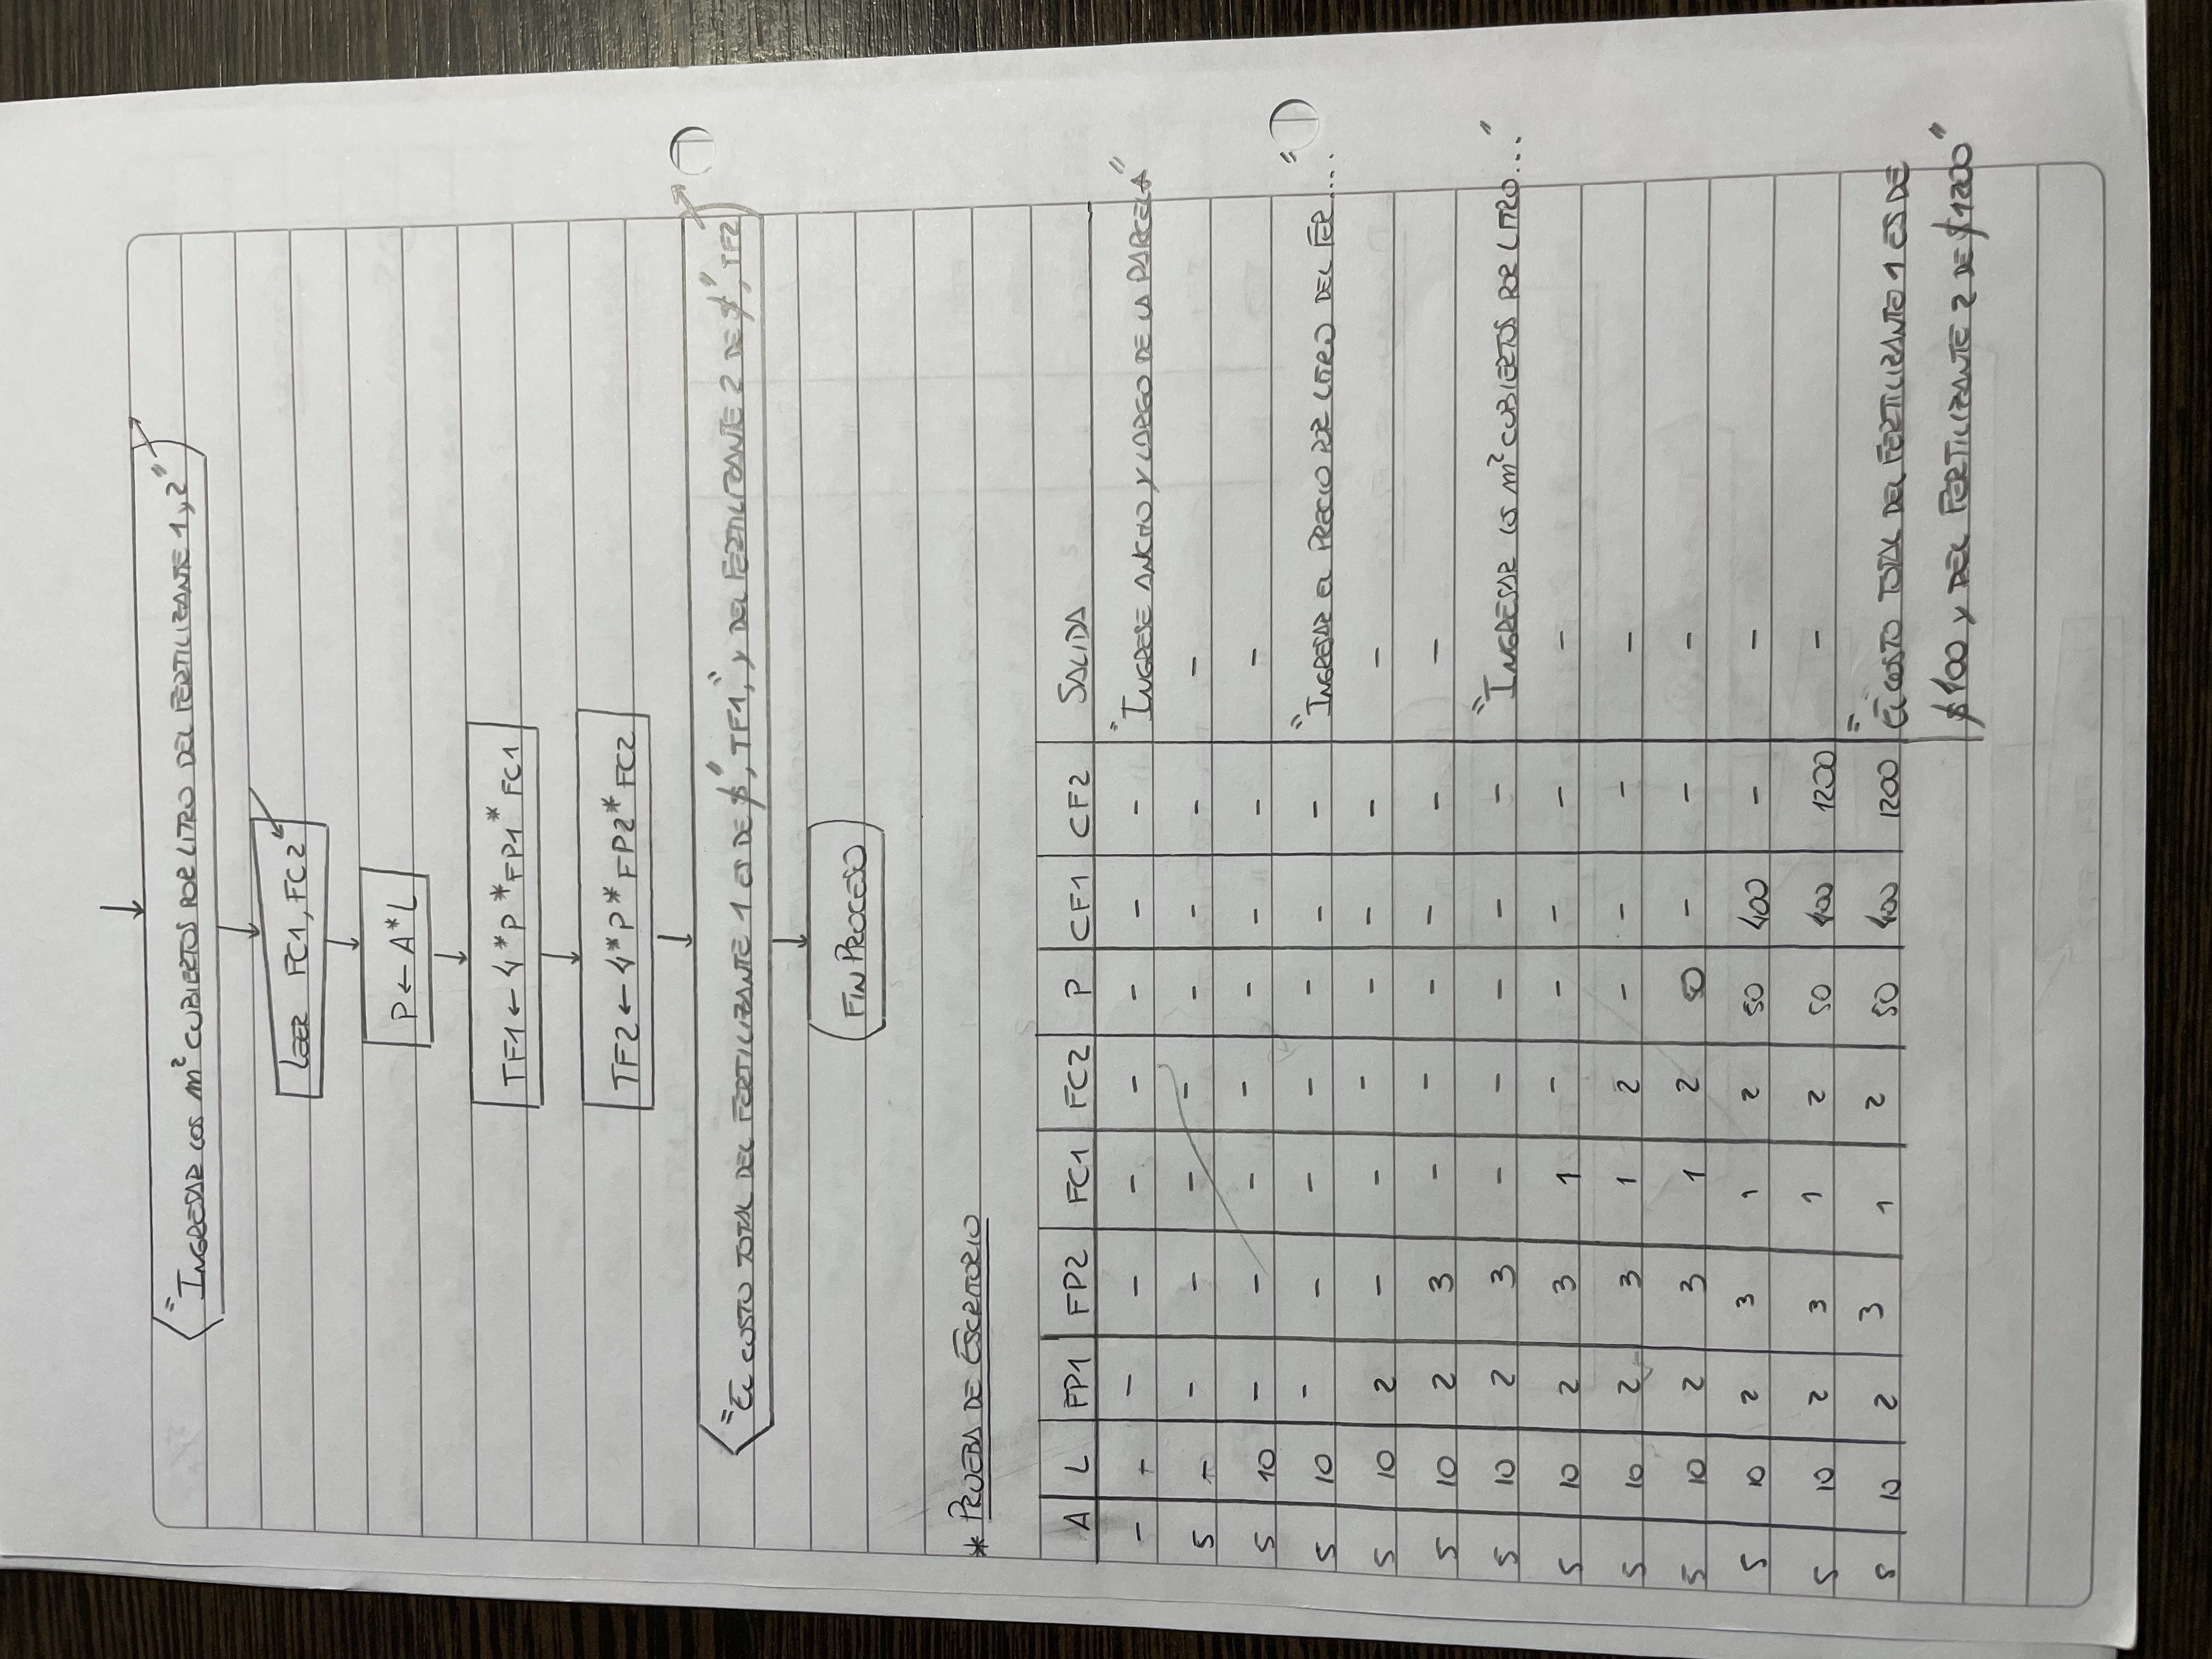 "INGRESAR LOS m² CUBIERTOS POR LITRO DEL FERTILIZANTE 1 y 2"
LEER FC1, FC2
P ← A*L
TF1 ← 4*P*FP1*FC1
TF2 ← 4*P*FP2*FC2
"EL COSTO TOTAL DEL FERTILIZANTE 1 ES DE $", TF1, "y DEL FERTILIZANTE 2 DE $", TF2
FIN PROCESO
* PRUEBA DE ESCRITORIO
A L FP1 FP2 FC1 FC2 P CF1 CF2 SALIDA
- - - - - - - - - "INGRESE ANCHO Y LARGO DE LA PARCELA"
5 - - - - - - - - -
5 10 - - - - - - - -
5 10 - - - - - - - "INGRESAR EL PRECIO POR LITRO DEL FER...."
5 10 2 - - - - - - -
5 10 2 3 - - - - - -
5 10 2 3 - - - - - "INGRESAR LOS m² CUBIERTOS POR LITRO..."
5 10 2 3 1 - - - - -
5 10 2 3 1 2 - - - -
5 10 2 3 1 2 50 - - -
5 10 2 3 1 2 50 400 - -
5 10 2 3 1 2 50 400 1200 -
5 10 2 3 1 2 50 400 1200 "EL COSTO TOTAL DEL FERTILIZANTE 1 ES DE
$400 y DEL FERTILIZANTE 2 DE $1200"